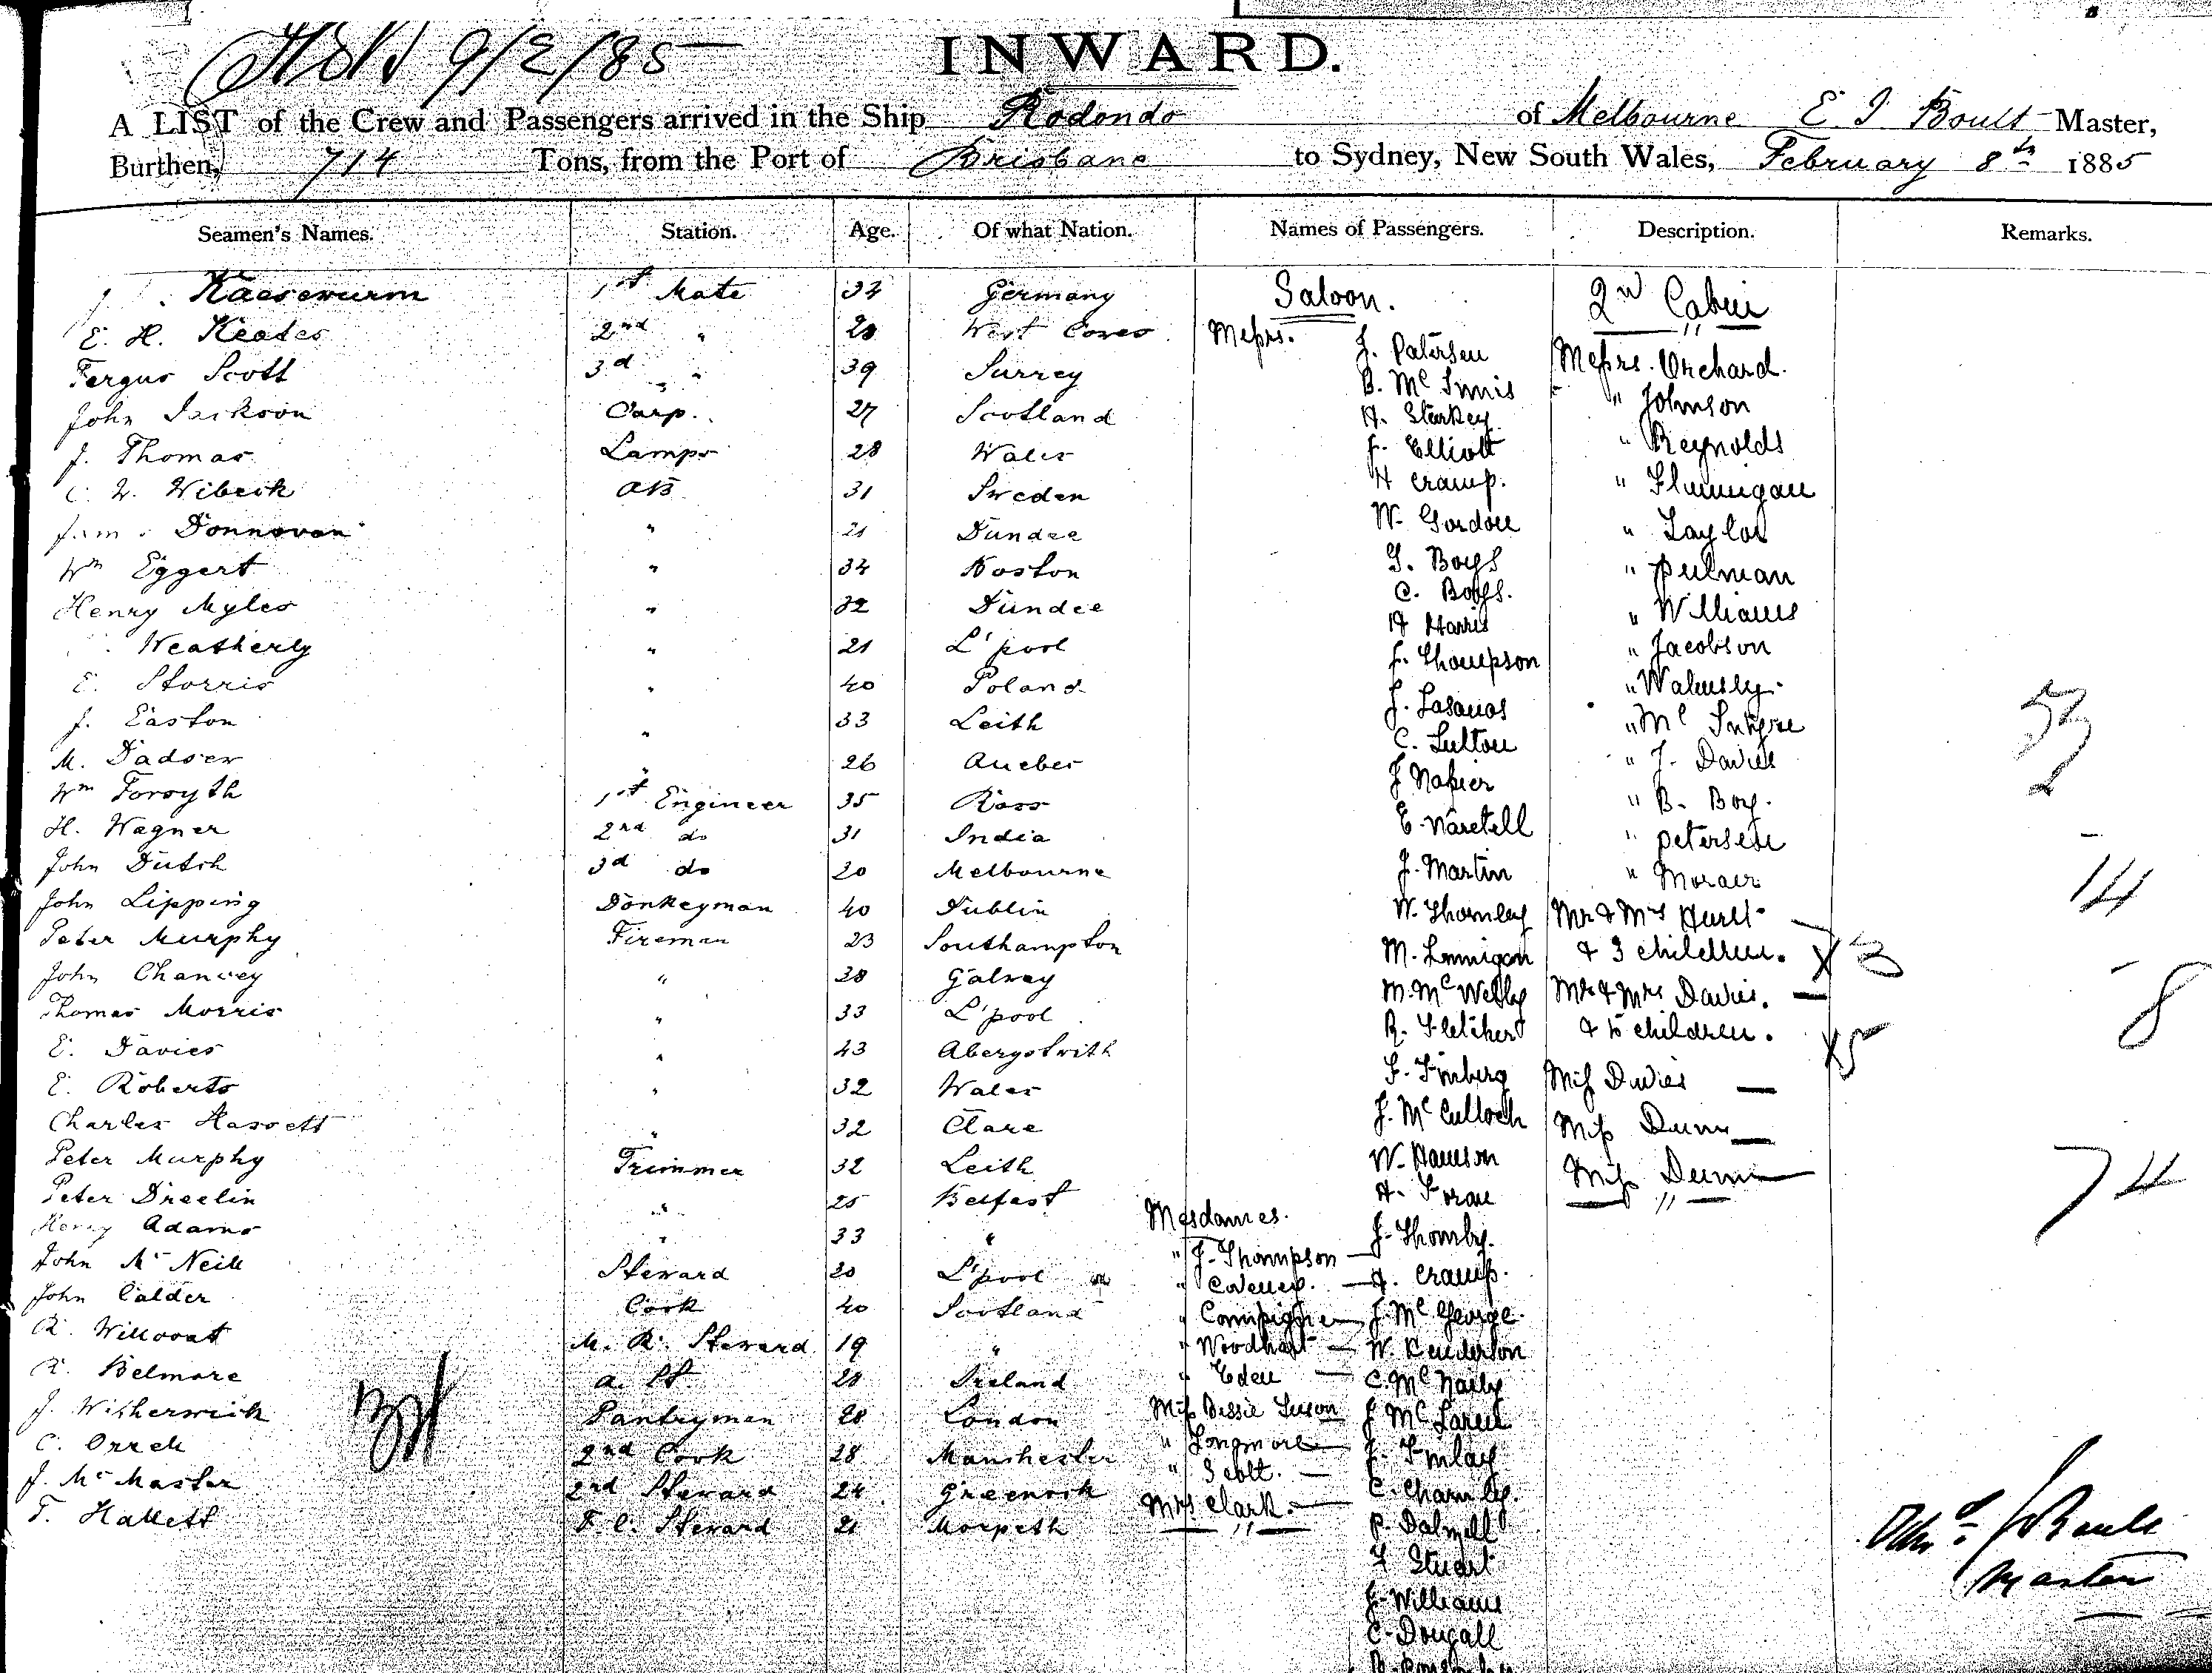 9/2/85
INWARD.
A LIST of the Crew and Passengers arrived in the Ship Rodondo of Melbourne E. J. Boult Master,
Burthen, 714 Tons, from the Port of Brisbane to Sydney, New South Wales, February 8th 1885
Seamen's Names. Station. Age. Of what Nation. Names of Passengers. Description. Remarks.
Kaesewurm 1st Mate 34 Germany
E. H. Keates 2nd " 28 West Cowes
Fergus Scott 3d " 39 Surrey
John Jackson Carp. 27 Scotland
J. Thomas Lamps 28 Wales
C. W. Wibeck AB 31 Sweden
Donnovan " 21 Dundee
Wm Eggert " 34 Boston
Henry Myles " 32 Dundee
Weatherly " 21 L'pool
E. Storris " 40 Poland
J. Easton " 33 Leith
M. Dadser " 26 Quebec
Wm Forsyth 1st Engineer 35 Ross
H. Wagner 2nd do 31 India
John Dutch 3d do 20 Melbourne
John Lipping Donkeyman 40 Dublin
Peter Murphy Fireman 23 Southampton
John Chancey " 38 Galway
Thomas Morris " 33 L'pool
E. Davies " 43 Aberystwith
E. Roberts " 32 Wales
Charles Hassett " 32 Clare
Peter Murphy Trimmer 32 Leith
Peter Dreelin " 25 Belfast
Henry Adams " 33 "
John McNeill Steward 20 L'pool
John Calder Cook 40 Scotland
R. Willcoat M. R. Steward 19 "
R. Belmore a. St. 28 Ireland
J. Witherwick Pantryman 28 London
C. Orrell 2nd Cook 28 Manchester
J. McMaster 2nd Steward 24 Greenock
T. Hallett F. C. Steward 21 Morpeth
Saloon.
Messrs. J. Patersen
B. McInnis
H. Starkey
J. Elliott
H Cramp.
W. Gordon
G. Boys
C. Boys.
H Harris
J. Thompson
J. Lasanos
C. Lutton
J Napier
E. Naretell
J. Martin
W. Thornley
M. Lannigan
M. McWelly
R. Fletcher
F. Finberg
J. McCulloch
W. Hanson
H. Foran
J. Thornby.
H. Cramp.
J. McGeorge.
W. Henderson
C. McNally
J McLaren
J. Finlay
C. Charnley.
P. Dalzell
F Stuart
J. Williams
C. Dougall
Mesdames.
" J. Thompson
" Coveney.
" Compigne
" Woodhart
" Eden
Miss Bessie Leeson
" Longmore
" Scott.
Mrs Clark.
2nd Cabin
Messrs. Orchard.
" Johnson
" Reynolds
" Flannigan
" Taylor
" Pulman
" Williams
" Jacobson
" Walmsly.
" McIntyre
" J. Davies
" B. Boy.
" Petersen
" Moraer
Mr & Mrs Hurst
& 3 children. X 3
Mr & Mrs Davies.
& 5 children. X 5
Miss Davies
Miss Dunn
Miss Dunn
14
8
74
Master